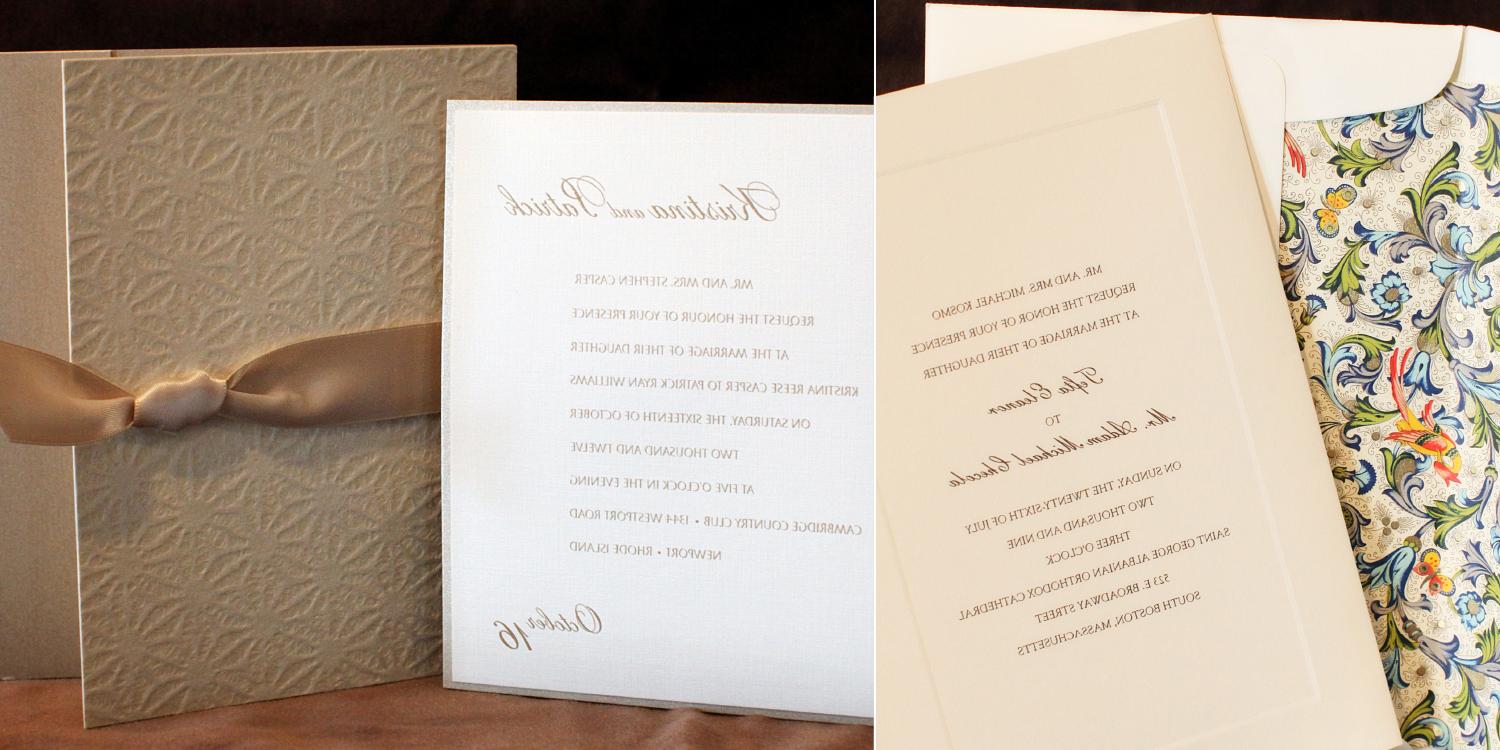 Kristina and Patrick
MR. AND MRS. STEPHEN CASPER
REQUEST THE HONOUR OF YOUR PRESENCE
AT THE MARRIAGE OF THEIR DAUGHTER
KRISTINA REESE CASPER TO PATRICK RYAN WILLIAMS
ON SATURDAY, THE SIXTEENTH OF OCTOBER
TWO THOUSAND AND TWELVE
AT FIVE O'CLOCK IN THE EVENING
CAMBRIDGE COUNTRY CLUB • 1344 WESTPORT ROAD
NEWPORT • RHODE ISLAND
October 16
MR. AND MRS. MICHAEL KOSMO
REQUEST THE HONOR OF YOUR PRESENCE
AT THE MARRIAGE OF THEIR DAUGHTER
Tefta Eleanor
TO
Mr. Adam Michael Checola
ON SUNDAY, THE TWENTY-SIXTH OF JULY
TWO THOUSAND AND NINE
THREE O'CLOCK
SAINT GEORGE ALBANIAN ORTHODOX CATHEDRAL
523 E. BROADWAY STREET
SOUTH BOSTON, MASSACHUSETTS